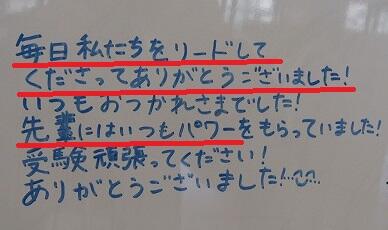 毎日私たちをリードして
くださってありがとうございました!
いつもおつかれさまでした!
先輩にはいつもパワーをもらっていました!
受験頑張ってください!
ありがとうございました!